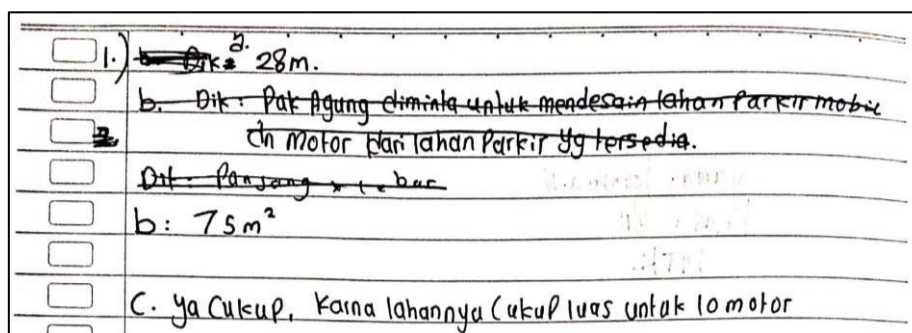 1.) a. Dik: 28m.
b. Dik: Pak Agung diminta untuk mendesain lahan Parkir mobil
dn motor dari lahan Parkir yg tersedia.
Dit: Panjang x lebar
b: 75m²
C. ya Cukup, Karna lahannya Cukup luas untuk 10 motor